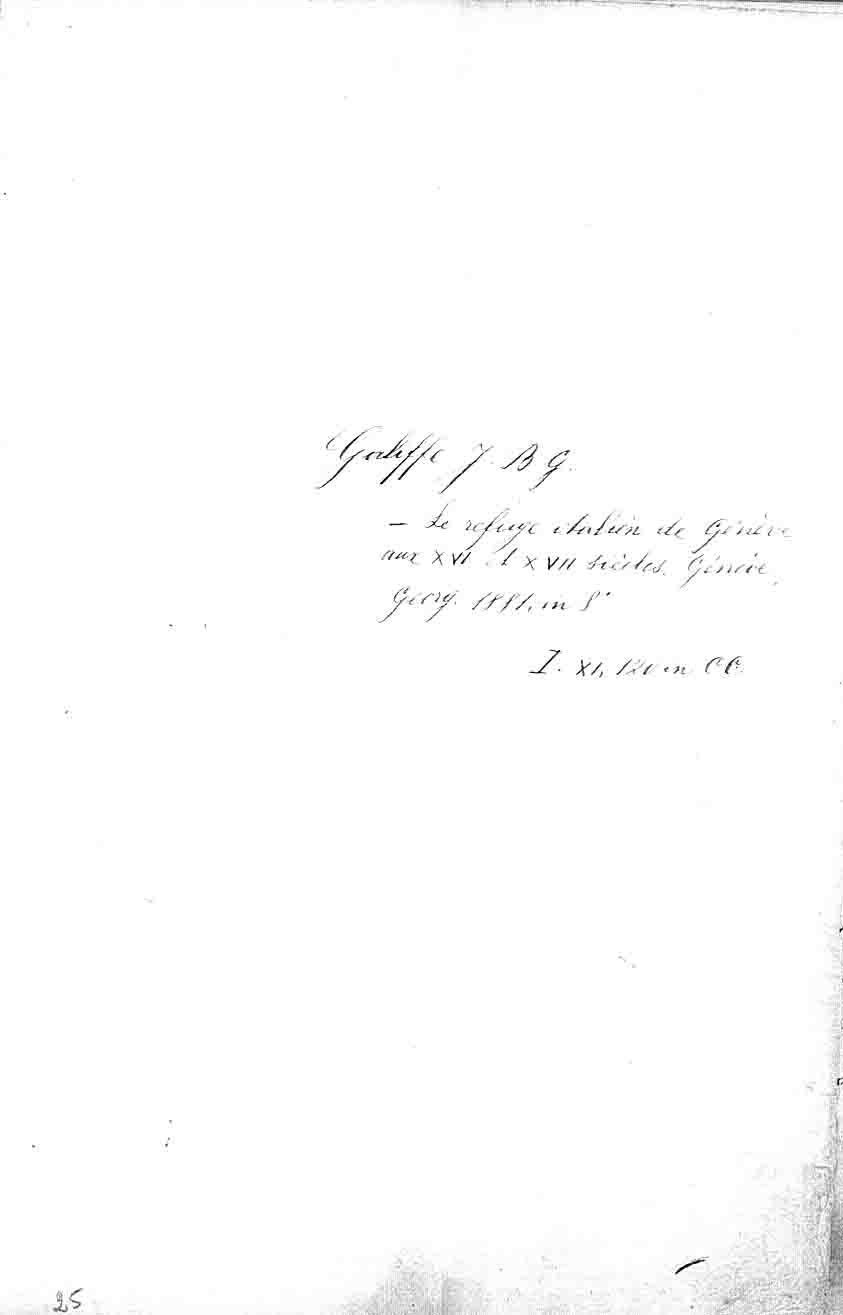 Galiffe J. B G.
– Le refuge italien de Genève
aux XVI et XVII siècles. Genève,
Georg. 1881, in 8°
I. XI, 120 in CC.
25